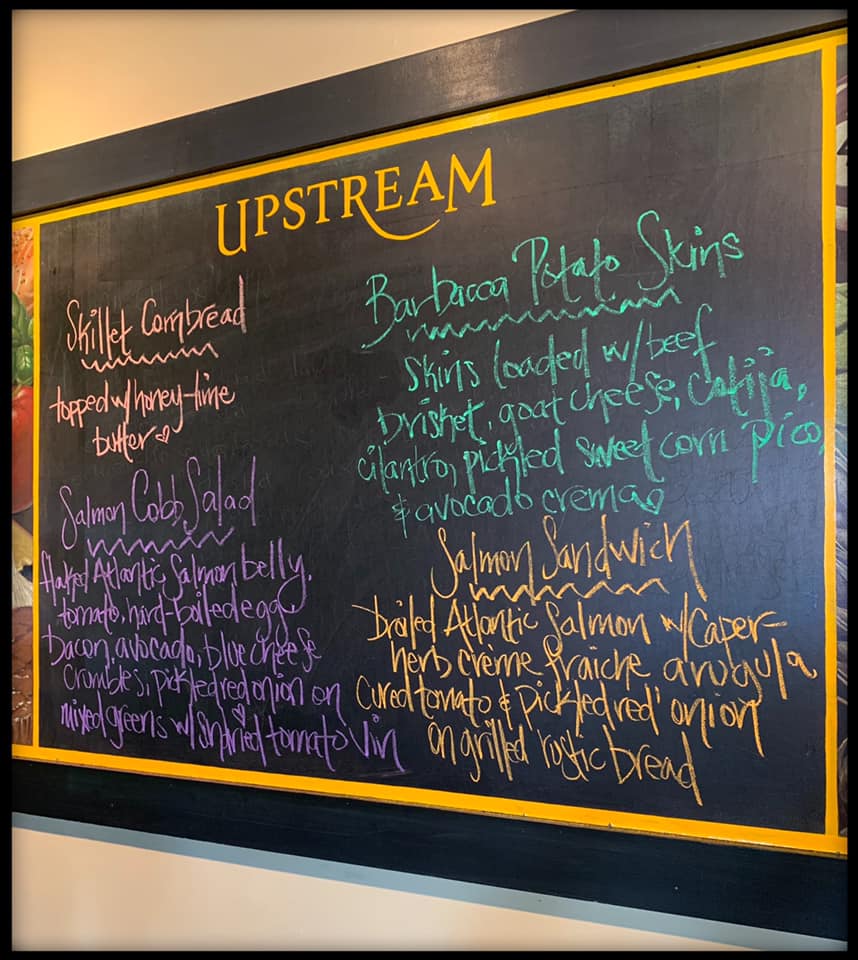 UPSTREAM
Skillet Cornbread
topped w/ honey-lime
butter
Salmon Cobb Salad
flaked Atlantic Salmon belly,
tomato, hard-boiled egg
bacon, avocado, blue cheese
crumbles, pickled red onion on
mixed greens w/ sndried tomato vin
Barbacoa Potato Skins
Skins loaded w/ beef
brisket, goat cheese, Cotija,
cilantro, pickled sweet corn pico,
& avocado crema
Salmon Sandwich
broiled Atlantic Salmon w/ Caper-
herb crème fraiche arugula
Cured tomato & pickled red onion
on grilled rustic bread